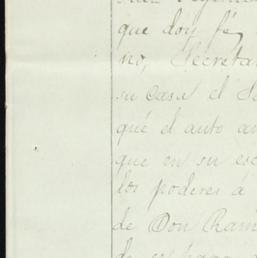 que doy fé
no, Secretar
su casa el S
qué el auto an
que en su esc
los poderes á
de Don Ram